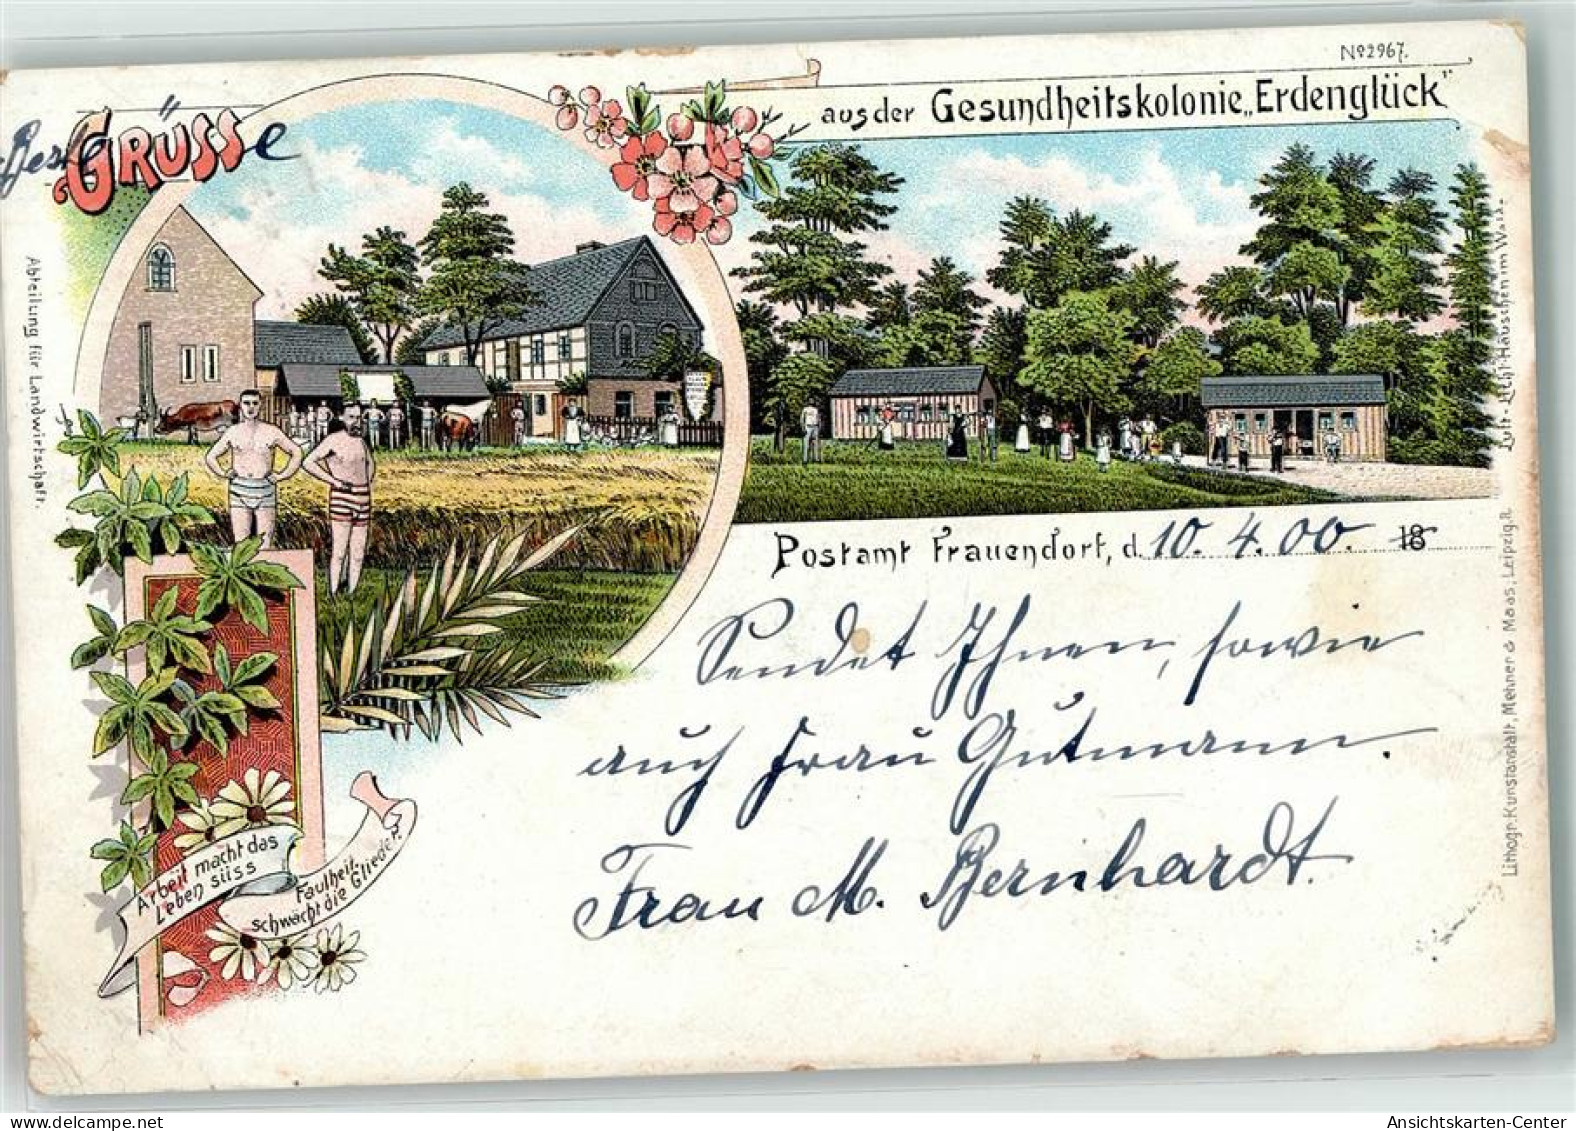 No 2967.
Beste GRÜSSe
aus der Gesundheitskolonie „Erdenglück"
Abteilung für Landwirtschaft.
Luft-Licht-Häuschen im Walde
Postamt Frauendorf, d. 10. 4. 00. 18
Sendet Ihnen, sowie
auch Frau Gutmann.
Frau M. Bernhardt.
Arbeit macht das
Leben süss
Faulheit
schwächt die Glieder.
Lithogr. Kunstanstalt, Mehner & Maas, Leipzig.R.
Ansichtskarten-Center